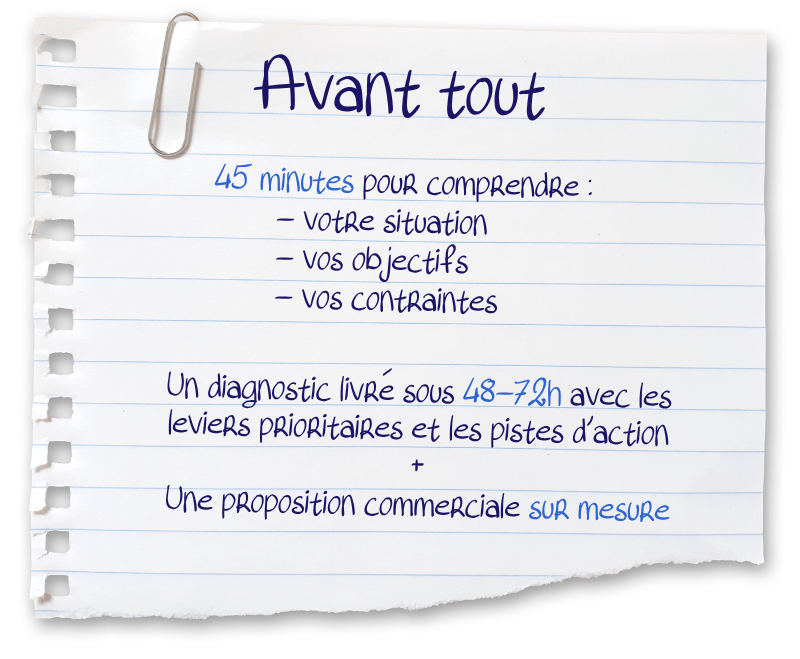 Avant tout
45 minutes pour comprendre :
– votre situation
– vos objectifs
– vos contraintes
Un diagnostic livré sous 48–72h avec les
leviers prioritaires et les pistes d'action
+
Une proposition commerciale sur mesure